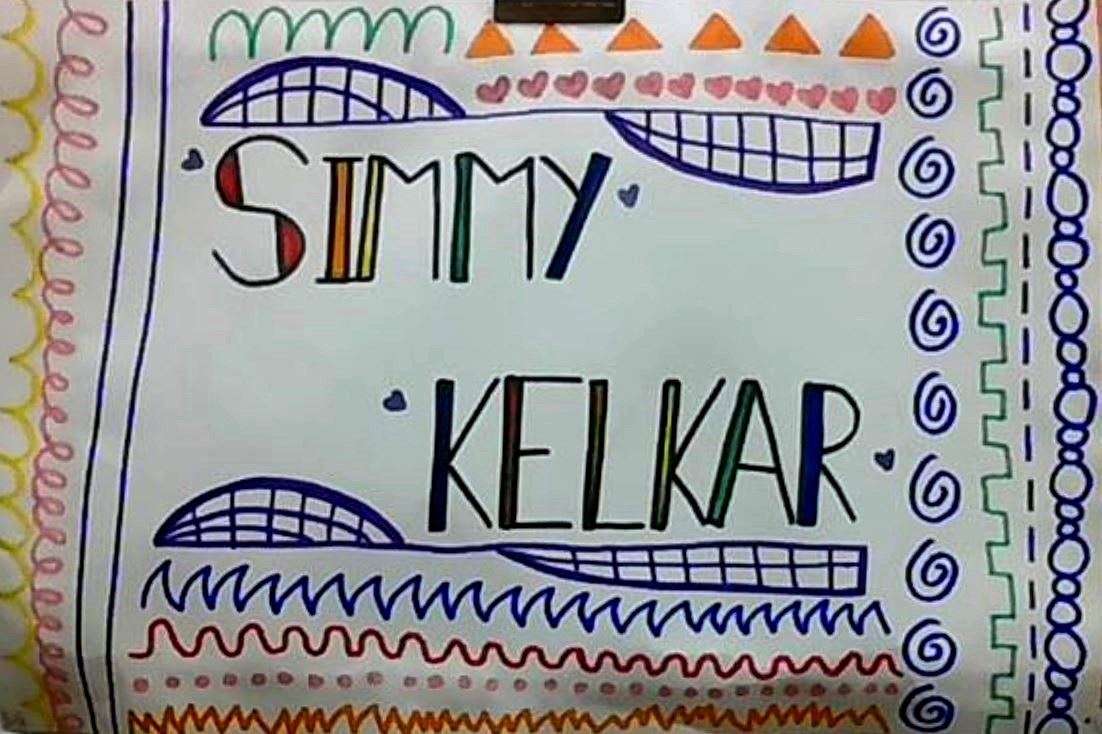 SIMMY
KELKAR